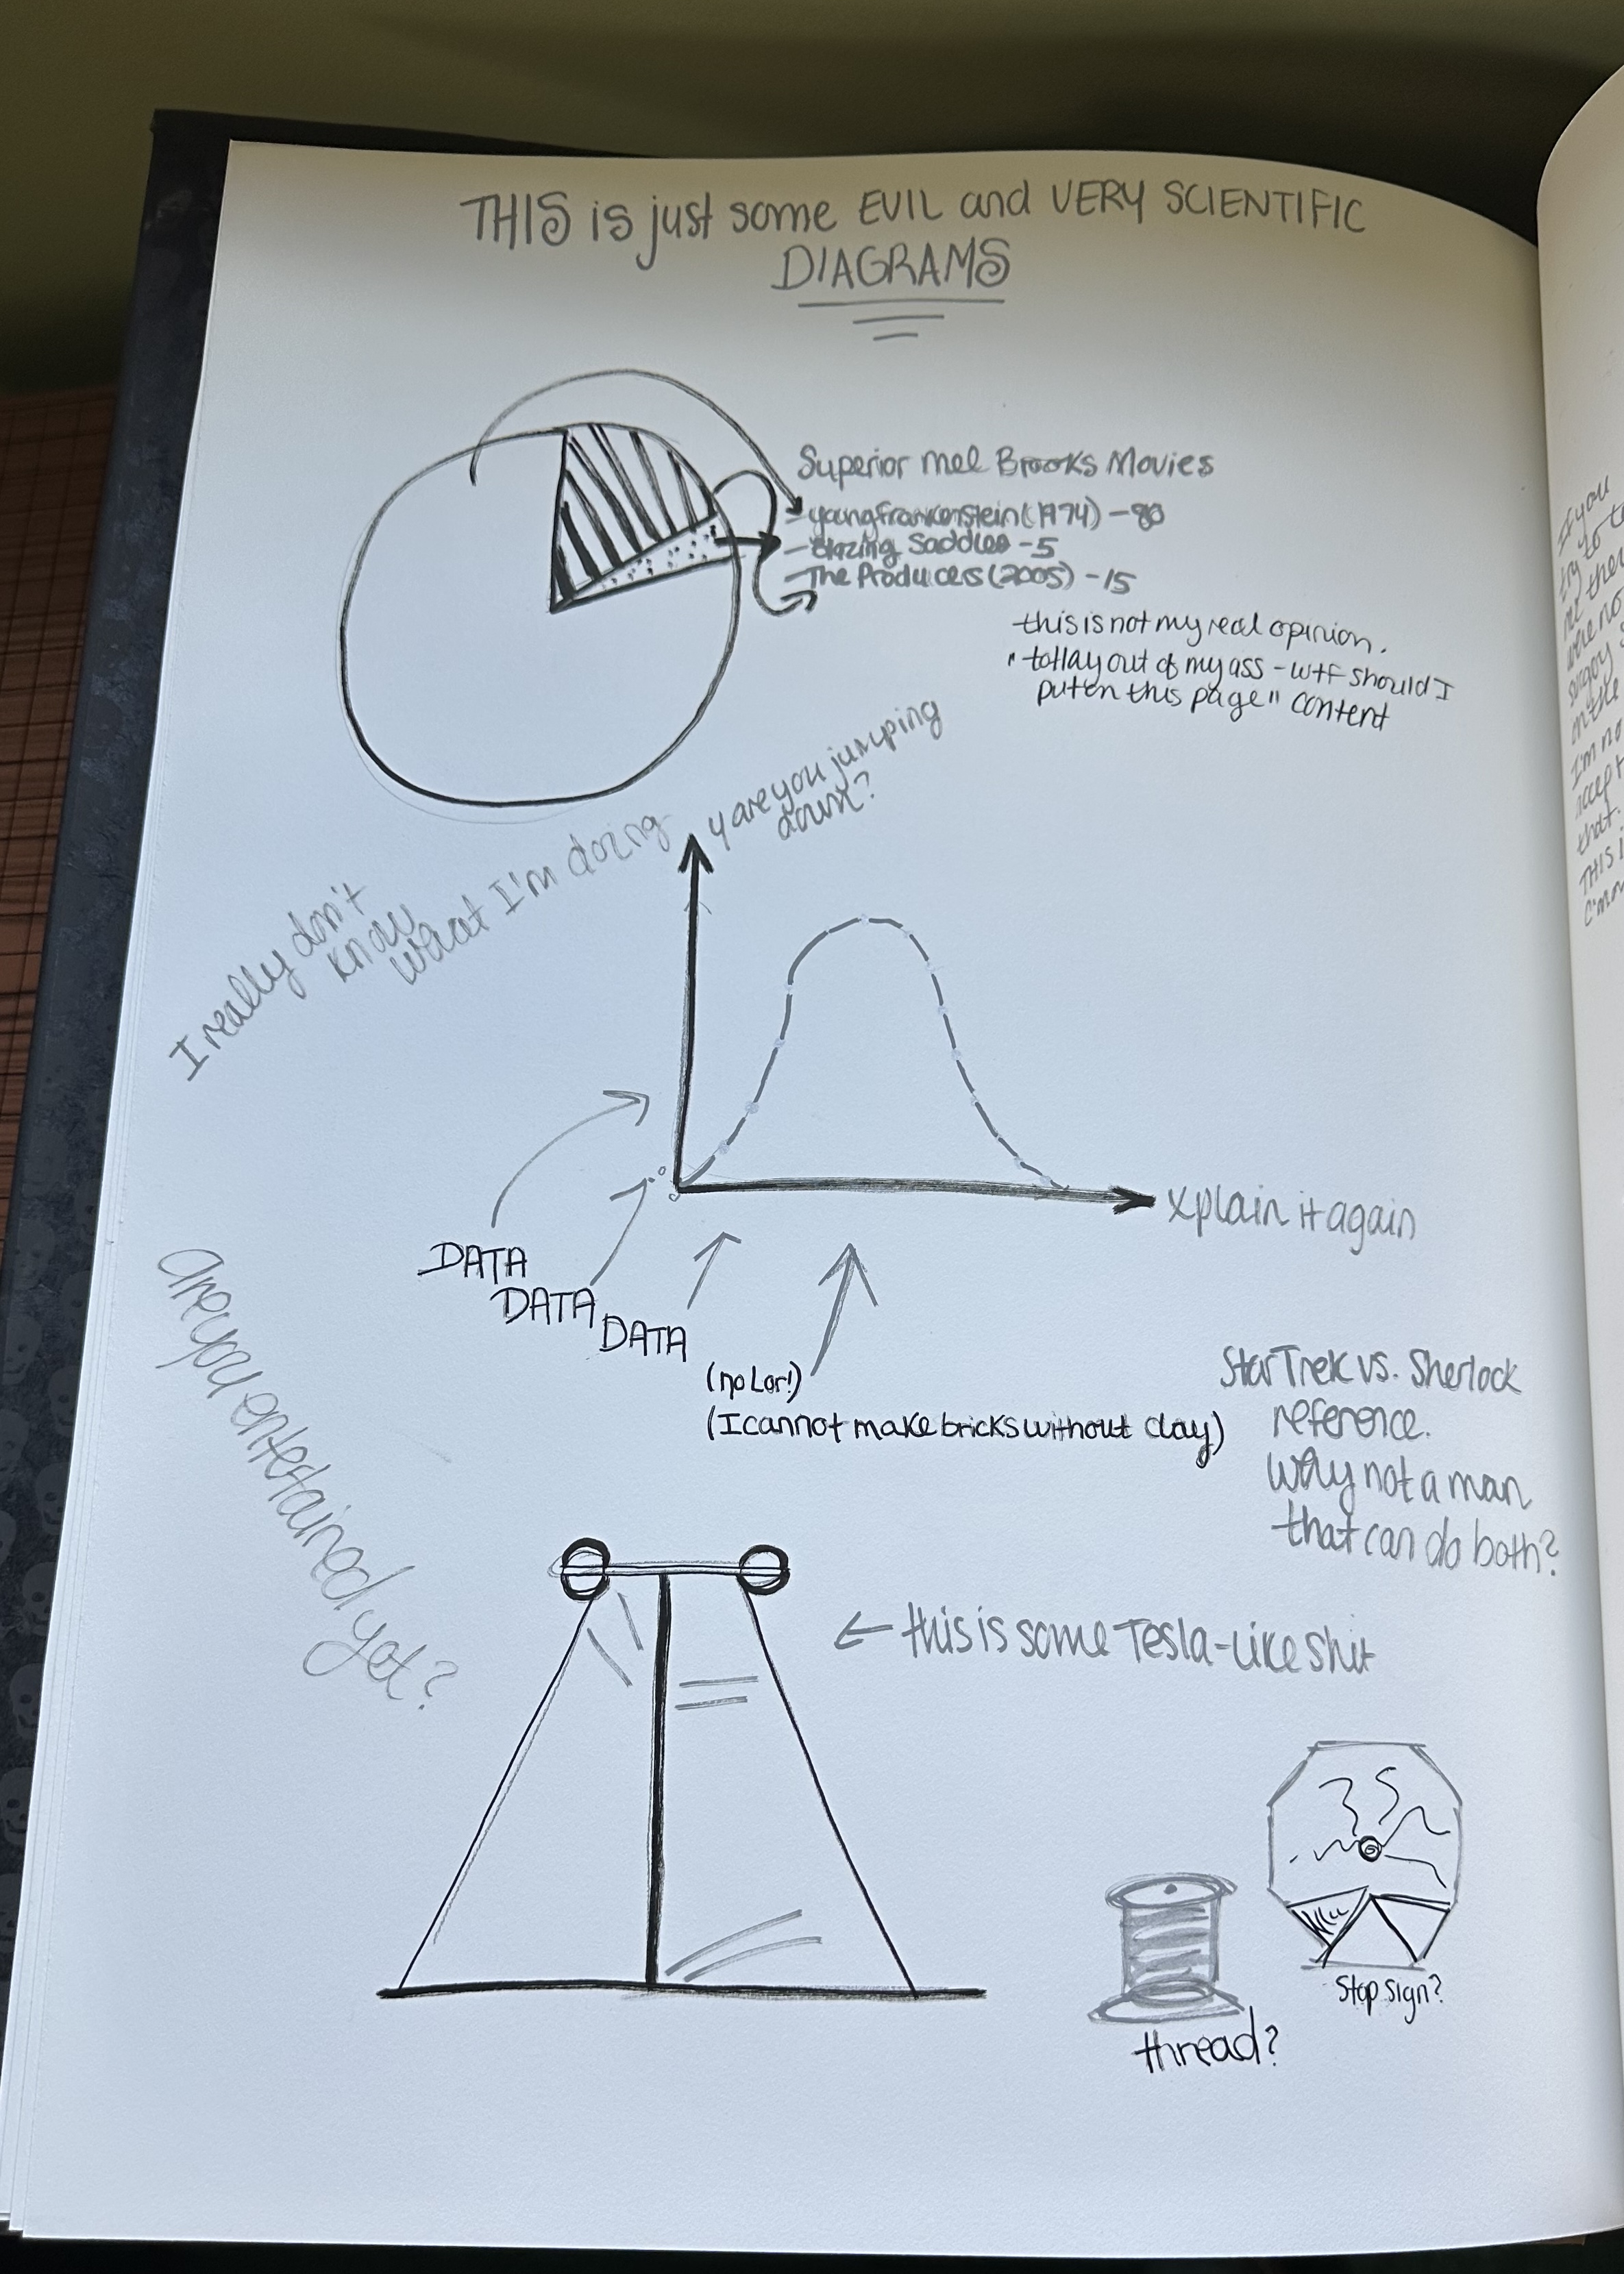 THIS is just some EVIL and VERY SCIENTIFIC
DIAGRAMS
Superior Mel Brooks Movies
- young frankenstein (1974) - 80
- Blazing Saddles - 5
- The Producers (2005) - 15
this is not my real opinion.
" totlay out of my ass - wtf should I
put on this page" content
I really don't
know
what I'm doing
y are you jumping
down?
xplain it again
DATA
DATA
DATA
(no Lor!)
(I cannot make bricks without clay)
Star Trek vs. Sherlock
reference.
why not a man
that can do both?
are you entertained yet?
← this is some Tesla-like shit
thread?
Stop sign?
If you
try to
me
were no
on the
I'm no
accept
that.
THIS i
C'mon